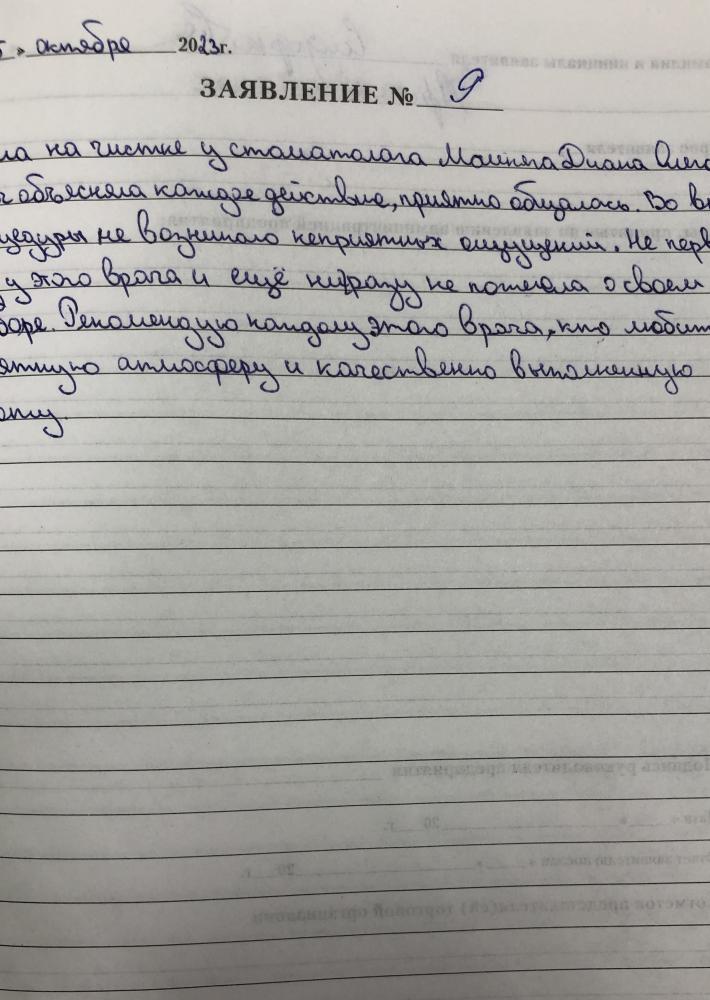 » октября 2023г.
ЗАЯВЛЕНИЕ № 9
на чистке у стоматолога Диана
объясняла каждое действие, приятно общалась. Во
не возникало неприятных ощущений. Не
у этого врача и ещё ни разу не пожалела о своем
Рекомендую каждому этого врача, кто любит
атмосферу и качественно выполненную